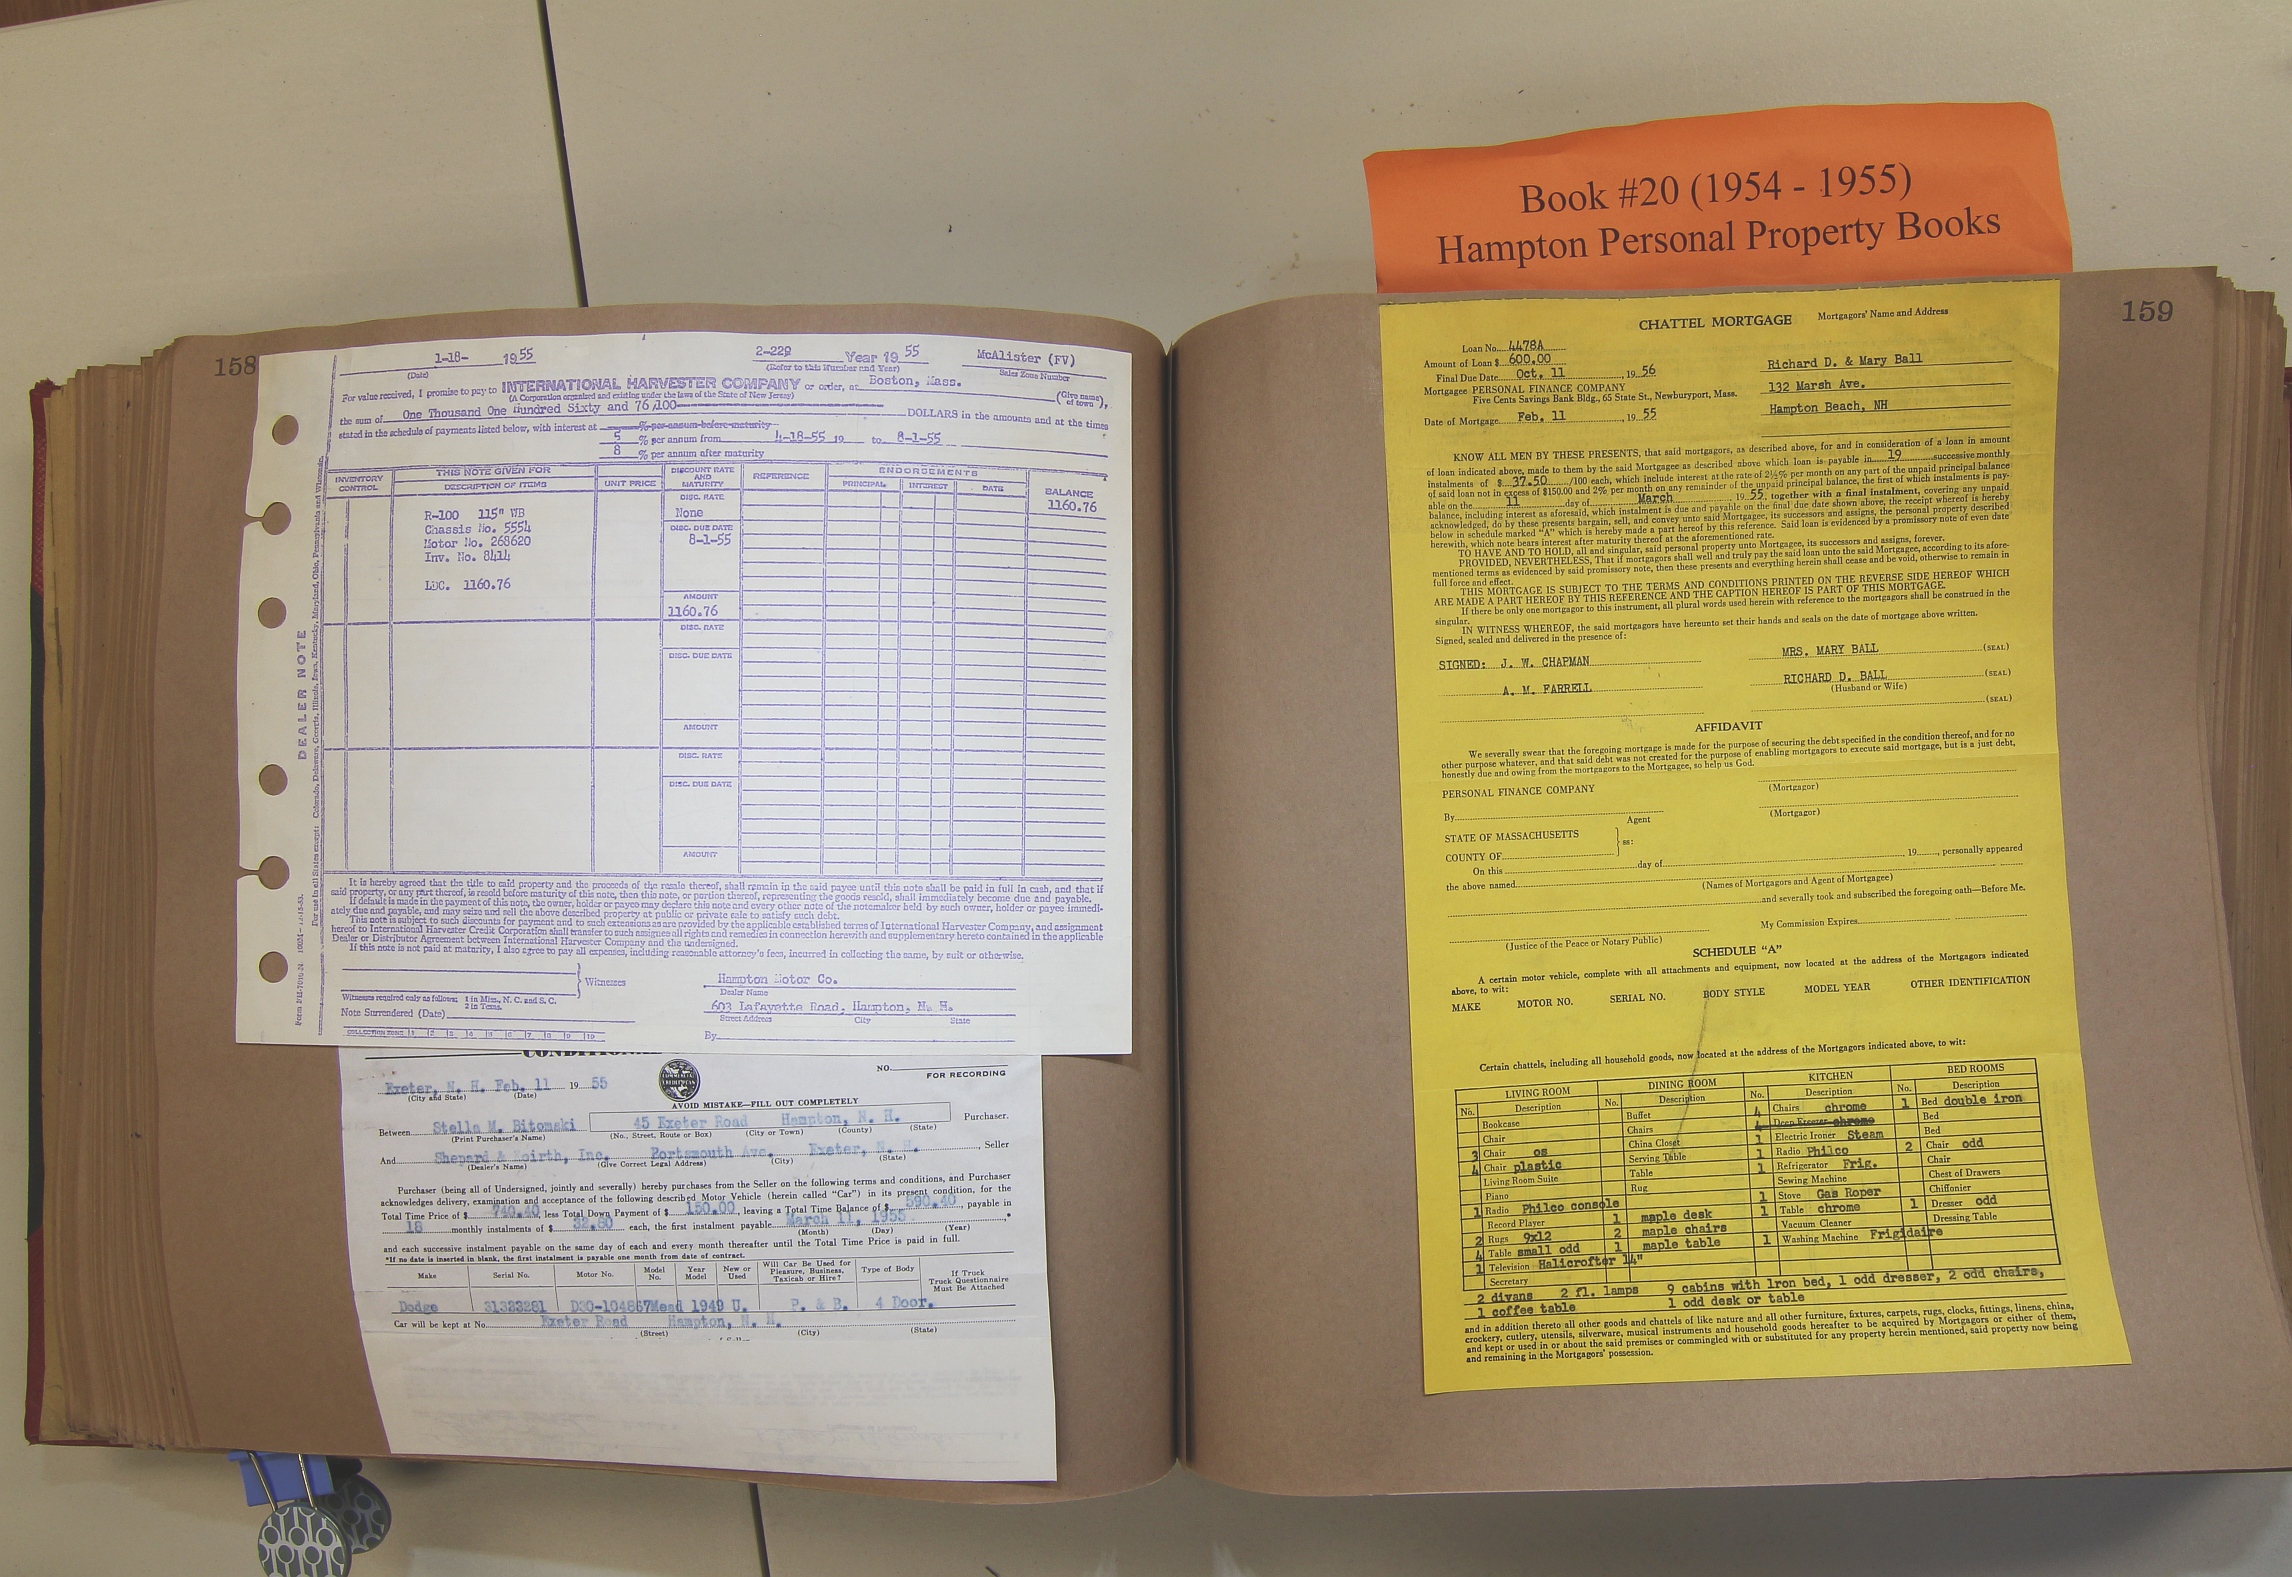 Book #20 (1954 - 1955)
Hampton Personal Property Books
158
1-18- 1955
(Date)
2-229 Year 19 55
(Refer to this Number and Year)
McAlister (FV)
Sales Zone Number
For value received, I promise to pay to INTERNATIONAL HARVESTER COMPANY or order, at Boston, Mass. (Give name of town),
(A Corporation organized and existing under the laws of the State of New Jersey)
the sum of One Thousand One Hundred Sixty and 76/100 DOLLARS in the amounts and at the times
stated in the schedule of payments listed below, with interest at % per annum before maturity
5 % per annum from 4-18-55 19 to 8-1-55
8 % per annum after maturity
INVENTORY CONTROL
THIS NOTE GIVEN FOR
DESCRIPTION OF ITEMS
UNIT PRICE
DISCOUNT RATE AND MATURITY
REFERENCE
ENDORSEMENTS
PRINCIPAL INTEREST DATE
BALANCE
1160.76
R-100 115" WB
Chassis No. 5554
Motor No. 268620
Inv. No. 8414
LUC. 1160.76
DISC. RATE
None
DISC. DUE DATE
8-1-55
AMOUNT
1160.76
DISC. RATE
DISC. DUE DATE
AMOUNT
DISC. RATE
DISC. DUE DATE
AMOUNT
DEALER NOTE
For use in all States except: Colorado, Delaware, Georgia, Illinois, Iowa, Kentucky, Maryland, Ohio, Pennsylvania and Wisconsin.
It is hereby agreed that the title to said property and the proceeds of the resale thereof, shall remain in the said payee until this note shall be paid in full in cash, and that if
said property, or any part thereof, is resold before maturity of this note, then this note, or portion thereof, representing the goods resold, shall immediately become due and payable.
If default is made in the payment of this note, the owner, holder or payee may declare this note and every other note of the notemaker held by such owner, holder or payee immedi-
ately due and payable, and may seize and sell the above described property at public or private sale to satisfy such debt.
This note is subject to such discounts for payment and to such extensions as are provided by the applicable established terms of International Harvester Company, and assignment
hereof to International Harvester Credit Corporation shall transfer to such assignee all rights and remedies in connection herewith and supplementary hereto contained in the applicable
Dealer or Distributor Agreement between International Harvester Company and the undersigned.
If this note is not paid at maturity, I also agree to pay all expenses, including reasonable attorney's fees, incurred in collecting the same, by suit or otherwise.
Witnesses
Witnesses required only as follows: 1 in Miss., N. C. and S. C.
2 in Texas.
Note Surrendered (Date)
COLLECTION ZONE 1 2 3 4 5 6 7 8 9 10
Hampton Motor Co.
Dealer Name
603 Lafayette Road, Hampton, N. H.
Street Address City State
By
NO.
FOR RECORDING
Exeter, N. H. Feb. 11 19 55
(City and State) (Date)
AVOID MISTAKE—FILL OUT COMPLETELY
Between Stella M. Bitomski 45 Exeter Road Hampton, N. H. Purchaser.
(Print Purchaser's Name) (No., Street, Route or Box) (City or Town) (County) (State)
And Shepard & Inc. Portsmouth Ave. Exeter, N. H., Seller
(Dealer's Name) (Give Correct Legal Address) (City) (State)
Purchaser (being all of Undersigned, jointly and severally) hereby purchases from the Seller on the following terms and conditions, and Purchaser
acknowledges delivery, examination and acceptance of the following described Motor Vehicle (herein called "Car") in its present condition, for the
Total Time Price of $ 740.40, less Total Down Payment of $ 150.00, leaving a Total Time Balance of $ 590.40, payable in
18 monthly instalments of $ 32.80 each, the first instalment payable March 11, 1955.*
(Month) (Day) (Year)
and each successive instalment payable on the same day of each and every month thereafter until the Total Time Price is paid in full.
*If no date is inserted in blank, the first instalment is payable one month from date of contract.
Make Serial No. Motor No. Model No. Year Model New or Used Will Car Be Used for Pleasure, Business, Taxicab or Hire? Type of Body If Truck Truck Questionnaire Must Be Attached
Dodge 31323281 D30-104867 Mead 1949 U. P. & B. 4 Door.
Car will be kept at No. Exeter Road Hampton, N. H.
(Street) (City) (State)
159
CHATTEL MORTGAGE Mortgagors' Name and Address
Loan No. 4478A
Amount of Loan $ 600.00
Final Due Date Oct. 11, 19 56
Mortgagee PERSONAL FINANCE COMPANY
Five Cents Savings Bank Bldg., 65 State St., Newburyport, Mass.
Date of Mortgage Feb. 11, 19 55
Richard D. & Mary Ball
132 Marsh Ave.
Hampton Beach, NH
KNOW ALL MEN BY THESE PRESENTS, that said mortgagors, as described above, for and in consideration of a loan in amount
of loan indicated above, made to them by the said Mortgagee as described above which loan is payable in 19 successive monthly
instalments of $ 37.50 /100 each, which include interest at the rate of 2½% per month on any part of the unpaid principal balance
of said loan not in excess of $150.00 and 2% per month on any remainder of the unpaid principal balance, the first of which instalments is pay-
able on the 11 day of March, 19 55, together with a final instalment, covering any unpaid
balance, including interest as aforesaid, which instalment is due and payable on the final due date shown above, the receipt whereof is hereby
acknowledged, do by these presents bargain, sell, and convey unto said Mortgagee, its successors and assigns, the personal property described
below in schedule marked "A" which is hereby made a part hereof by this reference. Said loan is evidenced by a promissory note of even date
herewith, which note bears interest after maturity thereof at the aforementioned rate.
TO HAVE AND TO HOLD, all and singular, said personal property unto Mortgagee, its successors and assigns, forever.
PROVIDED, NEVERTHELESS, That if mortgagors shall well and truly pay the said loan unto the said Mortgagee, according to its afore-
mentioned terms as evidenced by said promissory note, then these presents and everything herein shall cease and be void, otherwise to remain in
full force and effect.
THIS MORTGAGE IS SUBJECT TO THE TERMS AND CONDITIONS PRINTED ON THE REVERSE SIDE HEREOF WHICH
ARE MADE A PART HEREOF BY THIS REFERENCE AND THE CAPTION HEREOF IS PART OF THIS MORTGAGE.
If there be only one mortgagor to this instrument, all plural words used herein with reference to the mortgagors shall be construed in the
singular.
IN WITNESS WHEREOF, the said mortgagors have hereunto set their hands and seals on the date of mortgage above written.
Signed, sealed and delivered in the presence of:
SIGNED: J. W. CHAPMAN MRS. MARY BALL (SEAL)
A. M. FARRELL RICHARD D. BALL (SEAL)
(Husband or Wife)
(SEAL)
AFFIDAVIT
We severally swear that the foregoing mortgage is made for the purpose of securing the debt specified in the condition thereof, and for no
other purpose whatever, and that said debt was not created for the purpose of enabling mortgagors to execute said mortgage, but is a just debt,
honestly due and owing from the mortgagors to the Mortgagee, so help us God.
PERSONAL FINANCE COMPANY
(Mortgagor)
By
Agent
(Mortgagor)
STATE OF MASSACHUSETTS
ss:
COUNTY OF
On this day of, 19, personally appeared
the above named
(Names of Mortgagors and Agent of Mortgagee)
and severally took and subscribed the foregoing oath—Before Me.
My Commission Expires
(Justice of the Peace or Notary Public)
SCHEDULE "A"
A certain motor vehicle, complete with all attachments and equipment, now located at the address of the Mortgagors indicated
above, to wit:
MAKE MOTOR NO. SERIAL NO. BODY STYLE MODEL YEAR OTHER IDENTIFICATION
Certain chattels, including all household goods, now located at the address of the Mortgagors indicated above, to wit:
LIVING ROOM DINING ROOM KITCHEN BED ROOMS
No. Description No. Description No. Description No. Description
Bookcase Buffet 4 Chairs chrome 1 Bed double iron
Chair Chairs 4 Deep Freezer chrome Bed
3 Chair os China Closet 1 Electric Ironer Steam Bed
4 Chair plastic Serving Table 1 Radio Philco 2 Chair odd
Living Room Suite Table 1 Refrigerator Frig. Chair
Piano Rug Sewing Machine Chest of Drawers
1 Radio Philco console 1 Stove Gas Roper Chiffonier
Record Player 1 maple desk 1 Table chrome 1 Dresser odd
2 Rugs 9x12 2 maple chairs Vacuum Cleaner Dressing Table
4 Table small odd 1 maple table 1 Washing Machine Frigidaire
1 Television Halicrofter 14"
Secretary
2 divans 2 fl. lamps 9 cabins with iron bed, 1 odd dresser, 2 odd chairs,
1 coffee table 1 odd desk or table
and in addition thereto all other goods and chattels of like nature and all other furniture, fixtures, carpets, rugs, clocks, fittings, linens, china,
crockery, cutlery, utensils, silverware, musical instruments and household goods hereafter to be acquired by Mortgagors or either of them,
and kept or used in or about the said premises or commingled with or substituted for any property herein mentioned, said property now being
and remaining in the Mortgagors' possession.